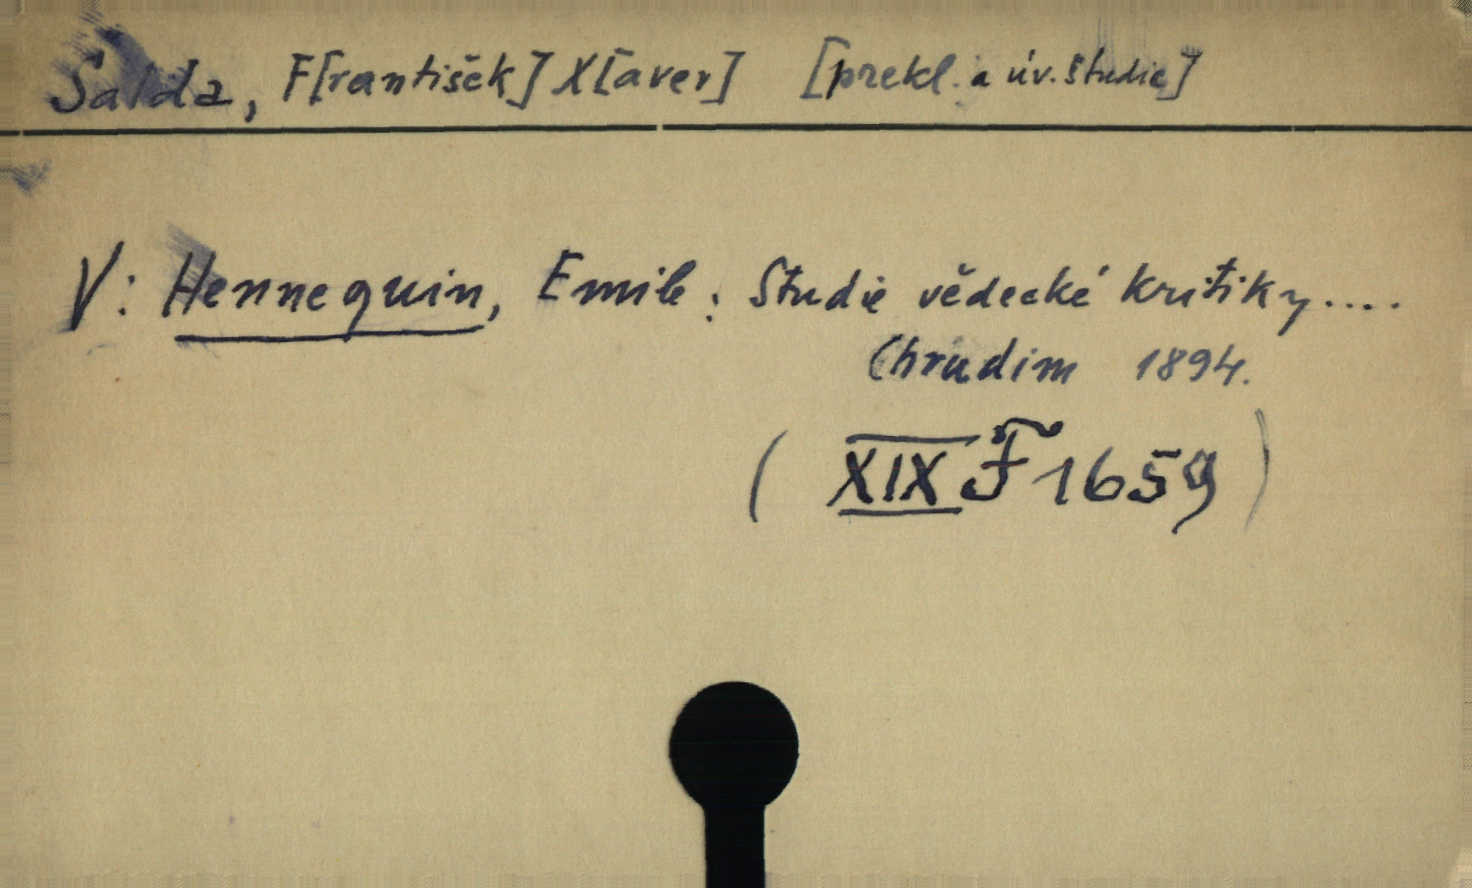 Šalda, F[rantišek] X[aver] [překl. a úv. studie]
V: Hennequin, Emile: Studie vědecké kritiky....
Chrudim 1894.
( XIX F 1659 )